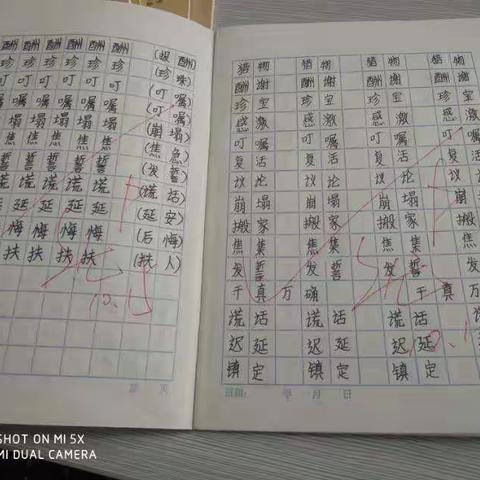 酬 酬 酬 酬 酬 (报酬)
珍 珍 珍 珍 珍 (珍珠)
叮 叮 叮 叮 叮 (叮嘱)
嘱 嘱 嘱 嘱 (叮嘱)
塌 塌 塌 塌 (崩塌)
焦 焦 焦 焦 焦 (焦急)
誓 誓 誓 誓 誓 (发誓)
谎 谎 谎 谎 (谎话)
延 延 延 延 (延安)
悔 悔 悔 悔 (后悔)
扶 扶 扶 扶 (扶人)
10.15
页
猎物 猎物 猎物 猎物
酬谢 酬谢 酬谢 酬谢
珍宝 珍宝 珍宝 珍宝
感激 感激 感激 感激
叮嘱 叮嘱 叮嘱 叮嘱
复活 复活 复活 复活
议论 议论 议论 议
崩塌 崩塌 崩塌 崩
搬家 搬家 搬家 搬
焦集 焦集 焦集 焦
发誓 发誓 发誓 发
千真万确 千真万
谎话 谎话 谎话
迟延 迟延 迟延
镇定 镇定 镇定
班级: 年 月 日
SHOT ON MI 5X
MI DUAL CAMERA